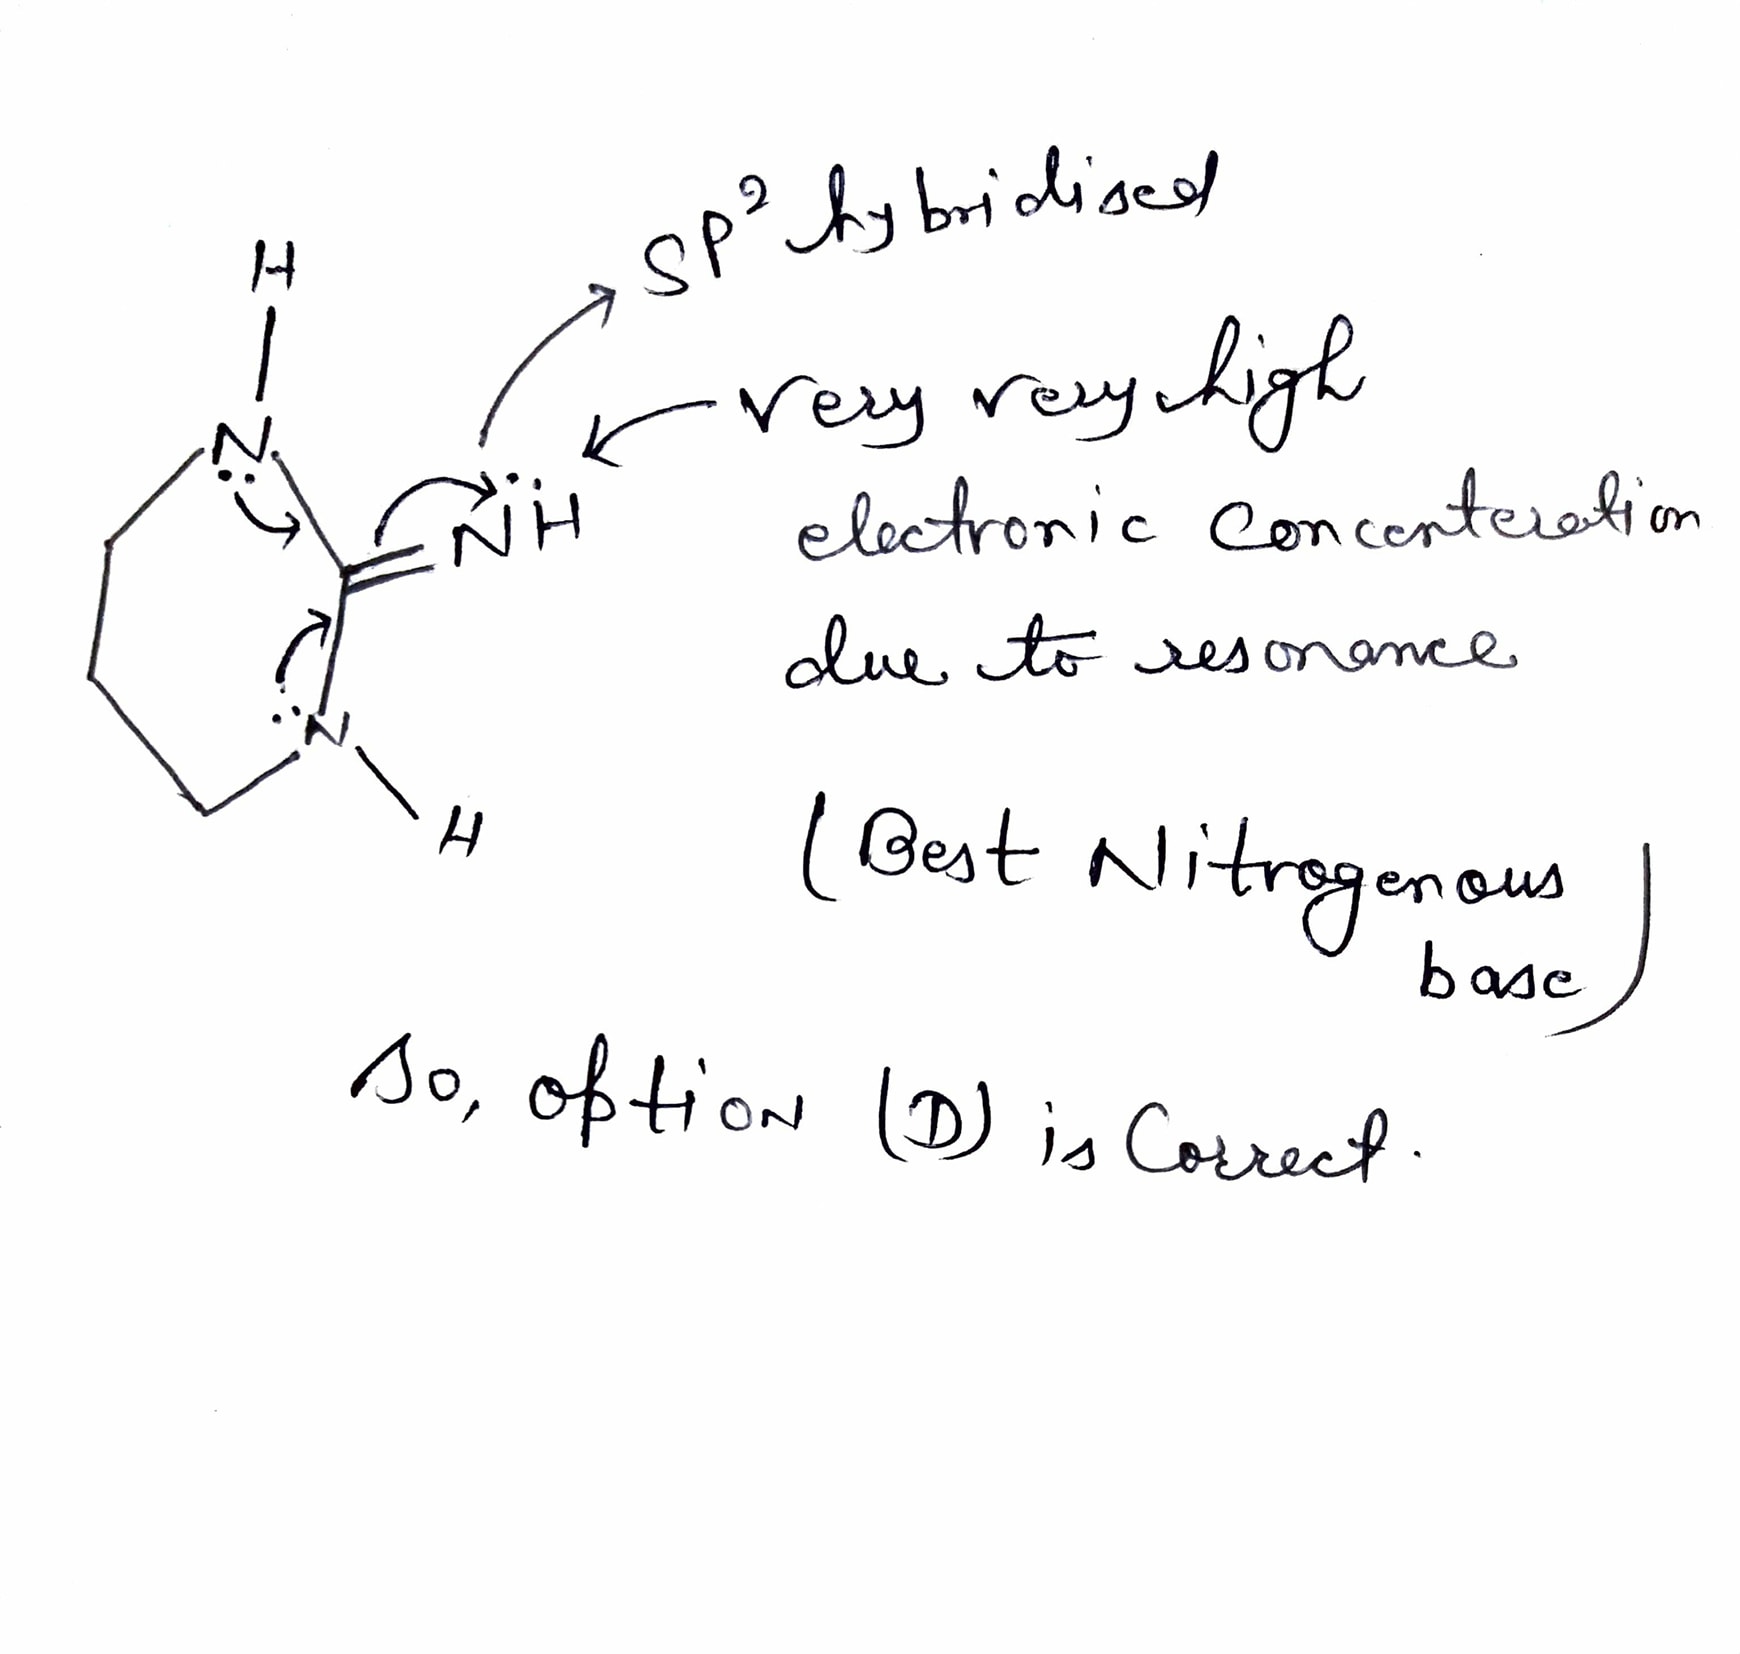 H
SP² hybridised
N
very very high
NH
electronic Concenteration
due to resonance
N
H
(Best Nitrogenous
base)
So, option (D) is Correct.